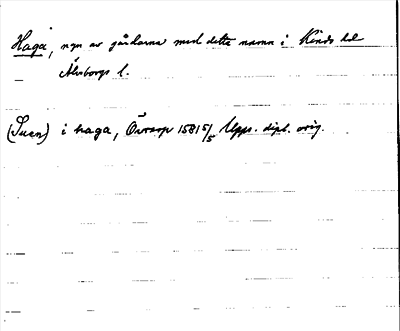 Haga, ngn av gårdarna med detta namn i Kinds hd
Älvsborgs l.
(Suen) i haga, Öxrarp 1581 5/5 Upps. dipl. orig.